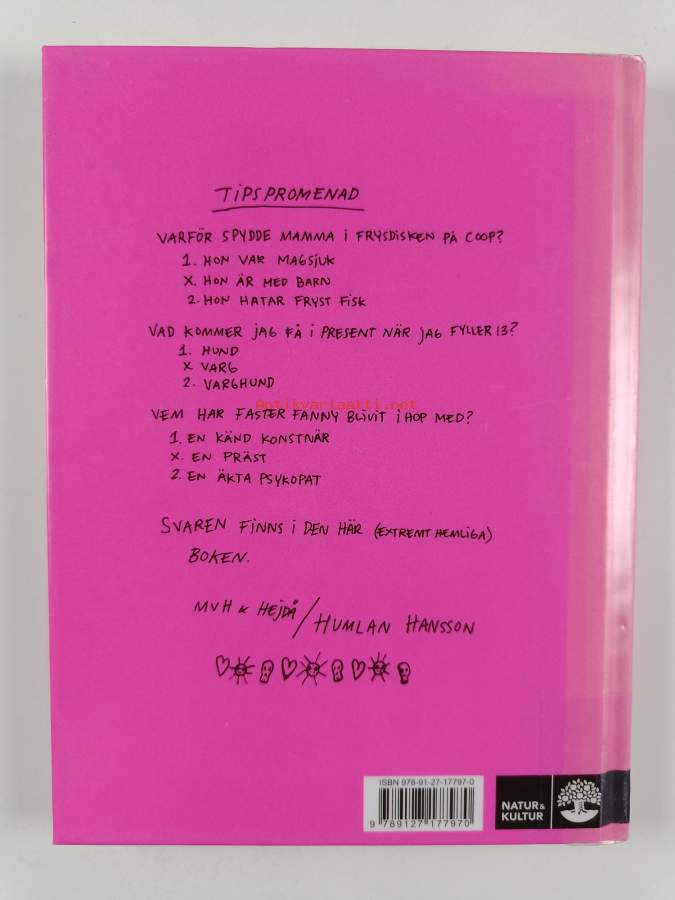 TIPSPROMENAD
VARFÖR SPYDDE MAMMA I FRYSDISKEN PÅ COOP?
1. HON VAR MAGSJUK
X. HON ÄR MED BARN
2. HON HATAR FRYST FISK
VAD KOMMER JAG FÅ I PRESENT NÄR JAG FYLLER 13?
1. HUND
X VARG
2. VARGHUND
Antikvariaatti.net
VEM HAR FASTER FANNY BLIVIT IHOP MED?
1. EN KÄND KONSTNÄR
X. EN PRÄST
2. EN ÄKTA PSYKOPAT
SVAREN FINNS I DEN HÄR (EXTREMT HEMLIGA)
BOKEN.
MVH & HEJDÅ / HUMLAN HANSSON
ISBN 978-91-27-17797-0
9 789127 177970
NATUR &
KULTUR